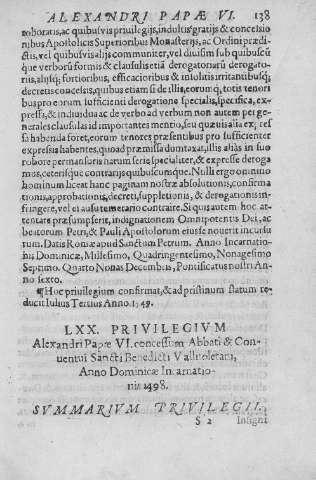 ALEXANDRI PAPÆ VI. 138
roboratis, ac quibusvis priuilegijs, indultis, gratijs & concessio
nibus Apostolicis Superioribus Monasterijs, ac Ordini prædi-
ctis, vel quibusvis alijs communiter, vel diuisim sub quibuscũ
que verborũ formis & clausulis etiã derogatoriarũ derogato-
rijs, alijsq; fortioribus, efficacioribus & insolitis irritantibusq;
decretis concessis, quibus etiam si de illis, eorumq; totis tenori
bus pro eorum sufficienti derogatione specialis, specifica, ex-
pressa, & indiuidua ac de verbo ad verbum non autem per ge-
nerales clausulas id importantes mentio, seu quæuis alia ex; res
sa habenda foret, eorum tenores præsentibus pro sufficienter
expressis habentes, quoad præmissa dumtaxat, illis aliàs in suo
robore permansuris harum serie specialiter, & expresse deroga
mos, ceterisque contrarijs quibuscumque. Nulli ergo omnino
hominum liceat hanc paginam nostræ absolutionis, confirma
tionis, approbationis, decreti, suppletionis, & derogationis in-
fringere, vel ei ausu temerario contraire. Si quis autem hoc at-
tentare præsumpserit, indignationem Omnipotentis Dei, ac
beatorum Petri, & Pauli Apostolorum eius se nouerit incursu
rum. Datis Romæ apud Sanctum Petrum. Anno Incarnatio-
nis Dominicæ, Millesimo, Quadringentesimo, Nonagesimo
Septimo. Quarto Nonas Decembris, Pontificatus nostri An-
no sexto.
¶ Hoc priuilegium confirmat, & ad pristinum statum re
ducit Iulius Tertius Anno. 1549.
LXX. PRIVILEGIVM
Alexandri Papæ VI. concessum Abbati & Con
uentui Sancti Benedicti Vallisoletani,
Anno Dominicæ Incarnatio-
nis 1498.
SVMMARIVM PRIVILEGII.
S 2 Insigni